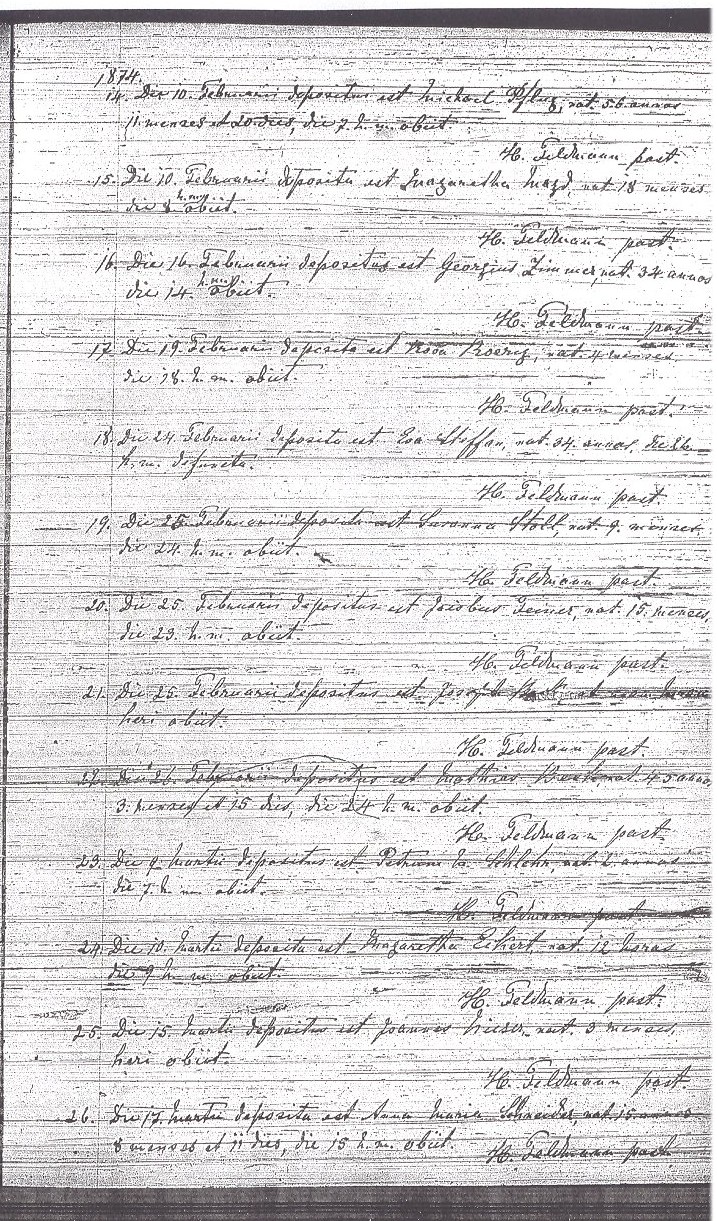 1874.
14. Die 10. Februarii depositus est Michael Pflug, nat. 56 annos
11 menses et 20 dies, die 7. h. m. obiit.
H. Feldmann past.
15. Die 10. Februarii deposita est Magaretha nat. 18 menses
die 8 h. m. obiit.
H. Feldmann past.
16. Die 16. Februarii depositus est Georgius Zimmer, nat. 34 annos
die 14. h. m. obiit.
H. Feldmann past.
17. Die 19. Februarii deposita est Rosa nat. 4 menses,
die 18. h. m. obiit.
H. Feldmann past.
18. Die 24. Februarii deposita est Eva Steffan, nat. 34. annos, die
h. m. defuncta.
H. Feldmann past
19. Die 25. Februarii deposita est Susanna Stoll, nat. 9. menses,
die 24. h. m. obiit.
H. Feldmann past.
20. Die 25. Februarii depositus est Jacobus nat. 15. menses,
die 23. h. m. obiit.
H. Feldmann past.
21. Die 25. Februarii depositus est Joseph
heri obiit.
H. Feldmann past
22. Die 26. Februarii depositus est Mathias nat. 45 annos
3. menses et 15 dies, die 24 h. m. obiit.
H. Feldmann past.
23. Die 9 Martii depositus est Petrum Schlehr, nat. 2 annos
die 7. h. m. obiit.
H. Feldmann past
24. Die 10. Martii deposita est Magaretha Eckert, nat. 12 horas
die 9 h. m. obiit.
H. Feldmann past.
25. Die 15. Martii depositus est Joannes nat. 3 menses,
heri obiit.
H. Feldmann past.
26. Die 17. Martii deposita est Anna Maria Schneider, nat. 15 annos
8 menses et 11 dies, die 15 h. m. obiit.
H. Feldmann past.